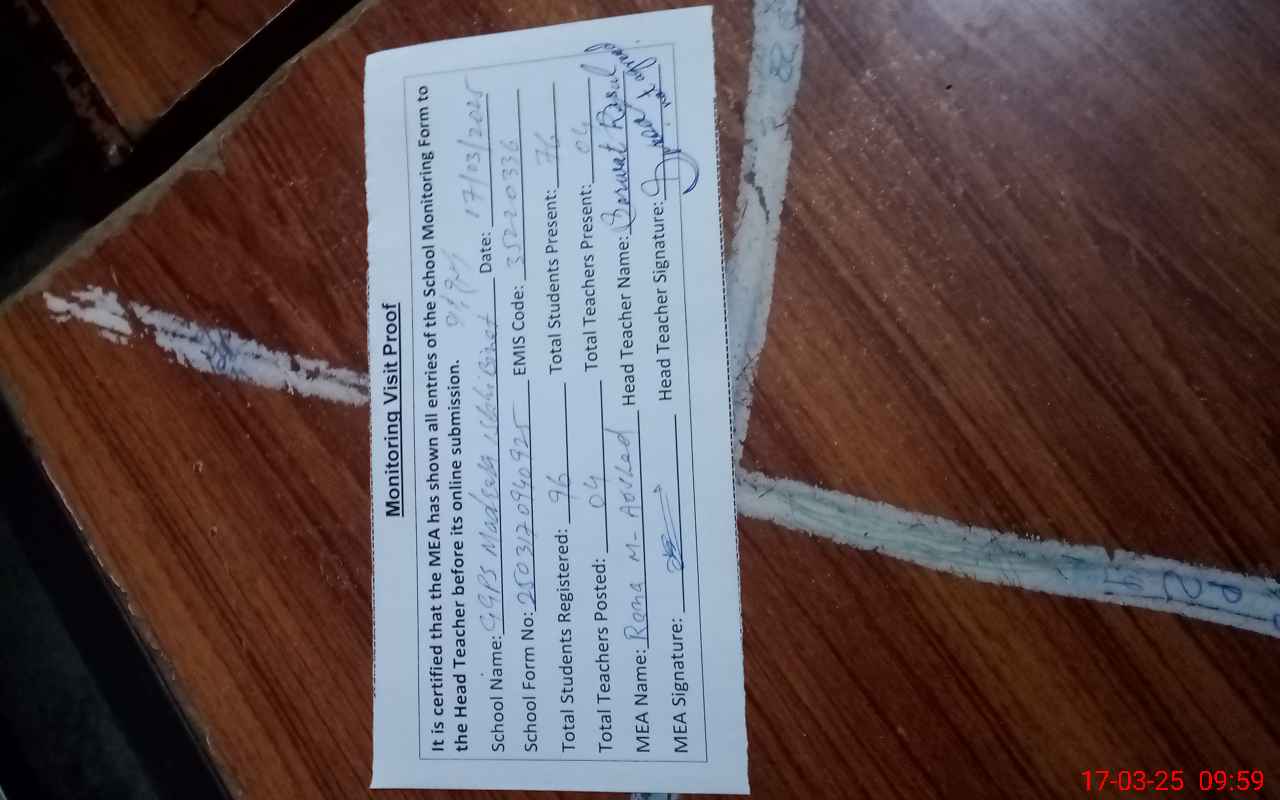 Monitoring Visit Proof
It is certified that the MEA has shown all entries of the School Monitoring Form to
the Head Teacher before its online submission.
School Name: GGPS Date: 17/03/2025
School Form No: 2503170940925 EMIS Code: 35220336
Total Students Registered: 96 Total Students Present: 76
Total Teachers Posted: 04 Total Teachers Present: 04
MEA Name: Rana M- Head Teacher Name: Rasul
MEA Signature: Head Teacher Signature:
17-03-25 09:59